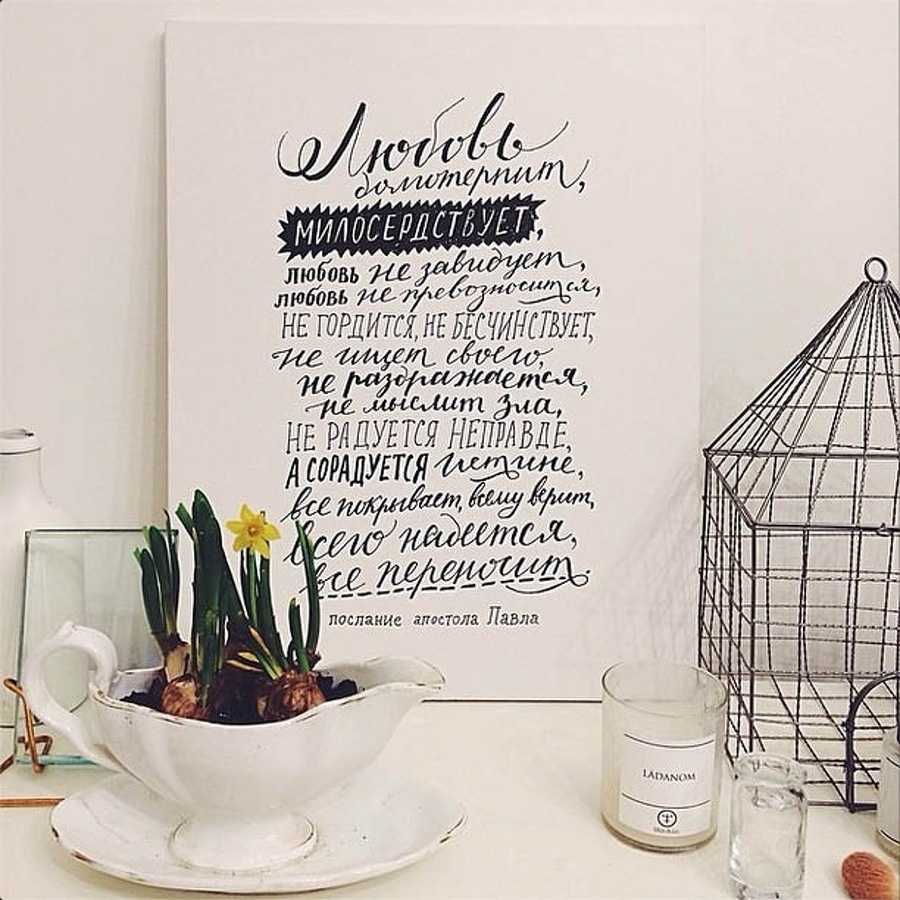 Любовь
долготерпит,
МИЛОСЕРДСТВУЕТ,
любовь не завидует,
любовь не превозносится,
НЕ ГОРДИТСЯ, НЕ БЕСЧИНСТВУЕТ,
не ищет своего,
не раздражается,
не мыслит зла,
НЕ РАДУЕТСЯ НЕПРАВДЕ,
А СОРАДУЕТСЯ истине,
все покрывает, всему верит,
всего надеется,
все переносит.
послание апостола Павла
LADANOM